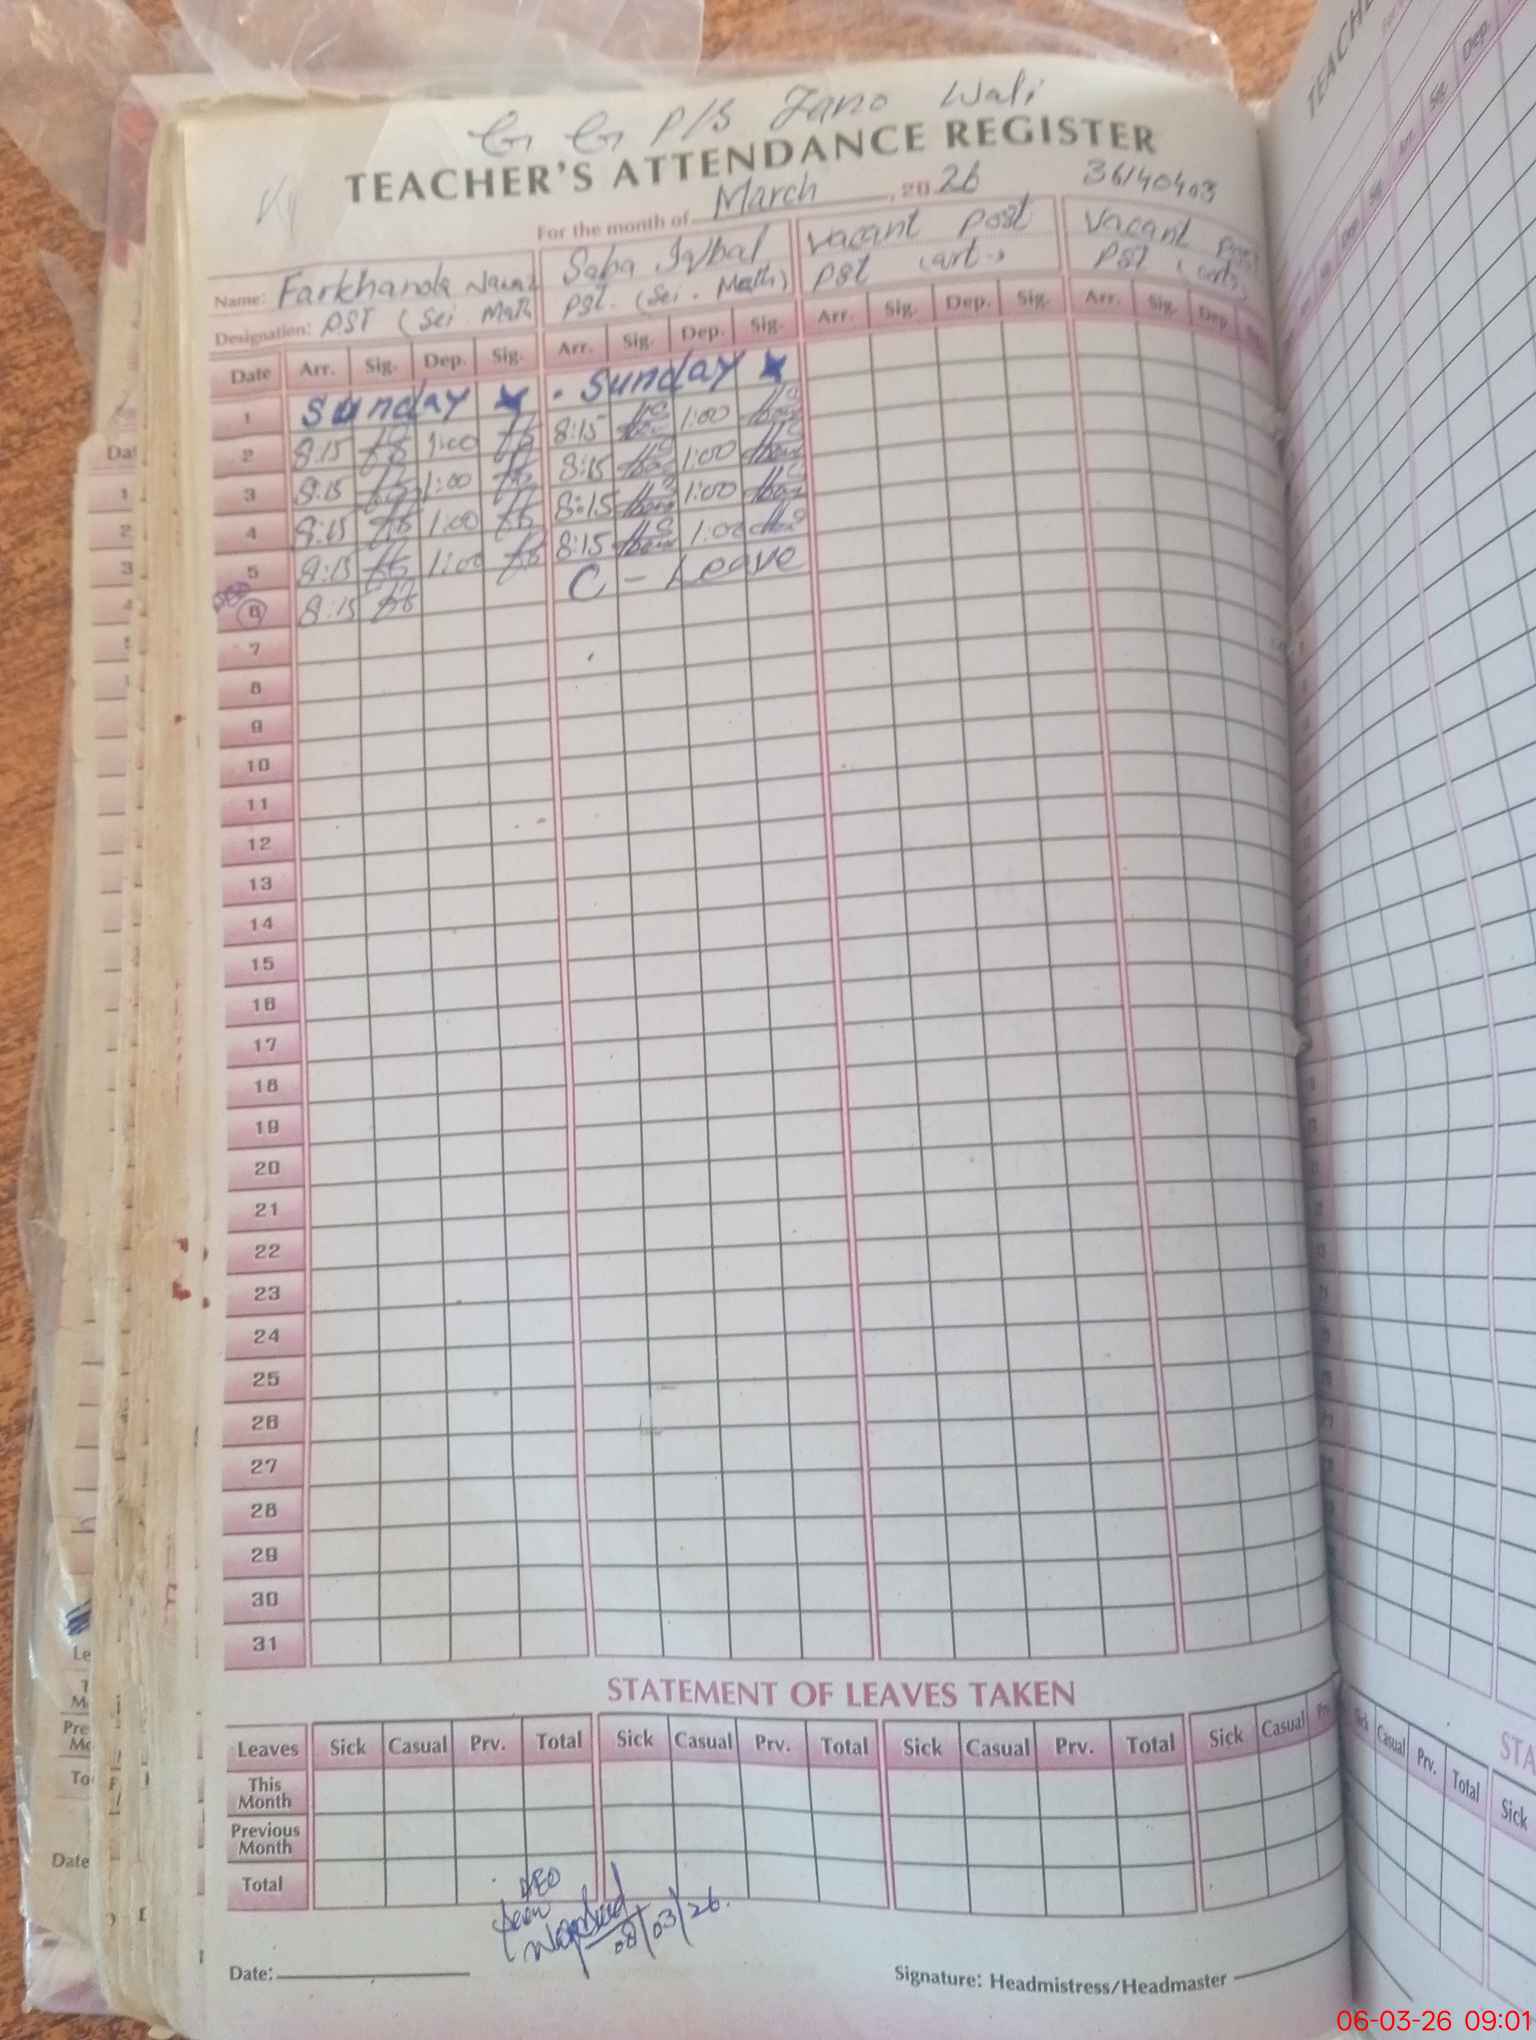 G G P/S Jano Wali
TEACHER'S ATTENDANCE REGISTER
For the month of March, 2026 36140403
Name: Farkhanda Nawaz Saba Iqbal Vacant post Vacant post
Designation: PST (Sci Math PST. (Sci. Math) PST (art.) PST (arts)
Date Arr. Sig. Dep. Sig. Arr. Sig. Dep. Sig. Arr. Sig. Dep. Sig. Arr. Sig. Dep
1 Sunday Sunday
2 8:15 1:00 8:15 1:00
3 8:15 1:00 8:15 1:00
4 8:15 1:00 8:15 1:00
5 8:15 1:00 8:15 1:00
6 8:15 C - Leave
7
8
9
10
11
12
13
14
15
16
17
18
19
20
21
22
23
24
25
26
27
28
29
30
31
STATEMENT OF LEAVES TAKEN
Leaves Sick Casual Prv. Total Sick Casual Prv. Total Sick Casual Prv. Total Sick Casual
This
Month
Previous
Month
Total
AEO
Seen
/03/26.
Date:
Signature: Headmistress/Headmaster
06-03-26 09:01